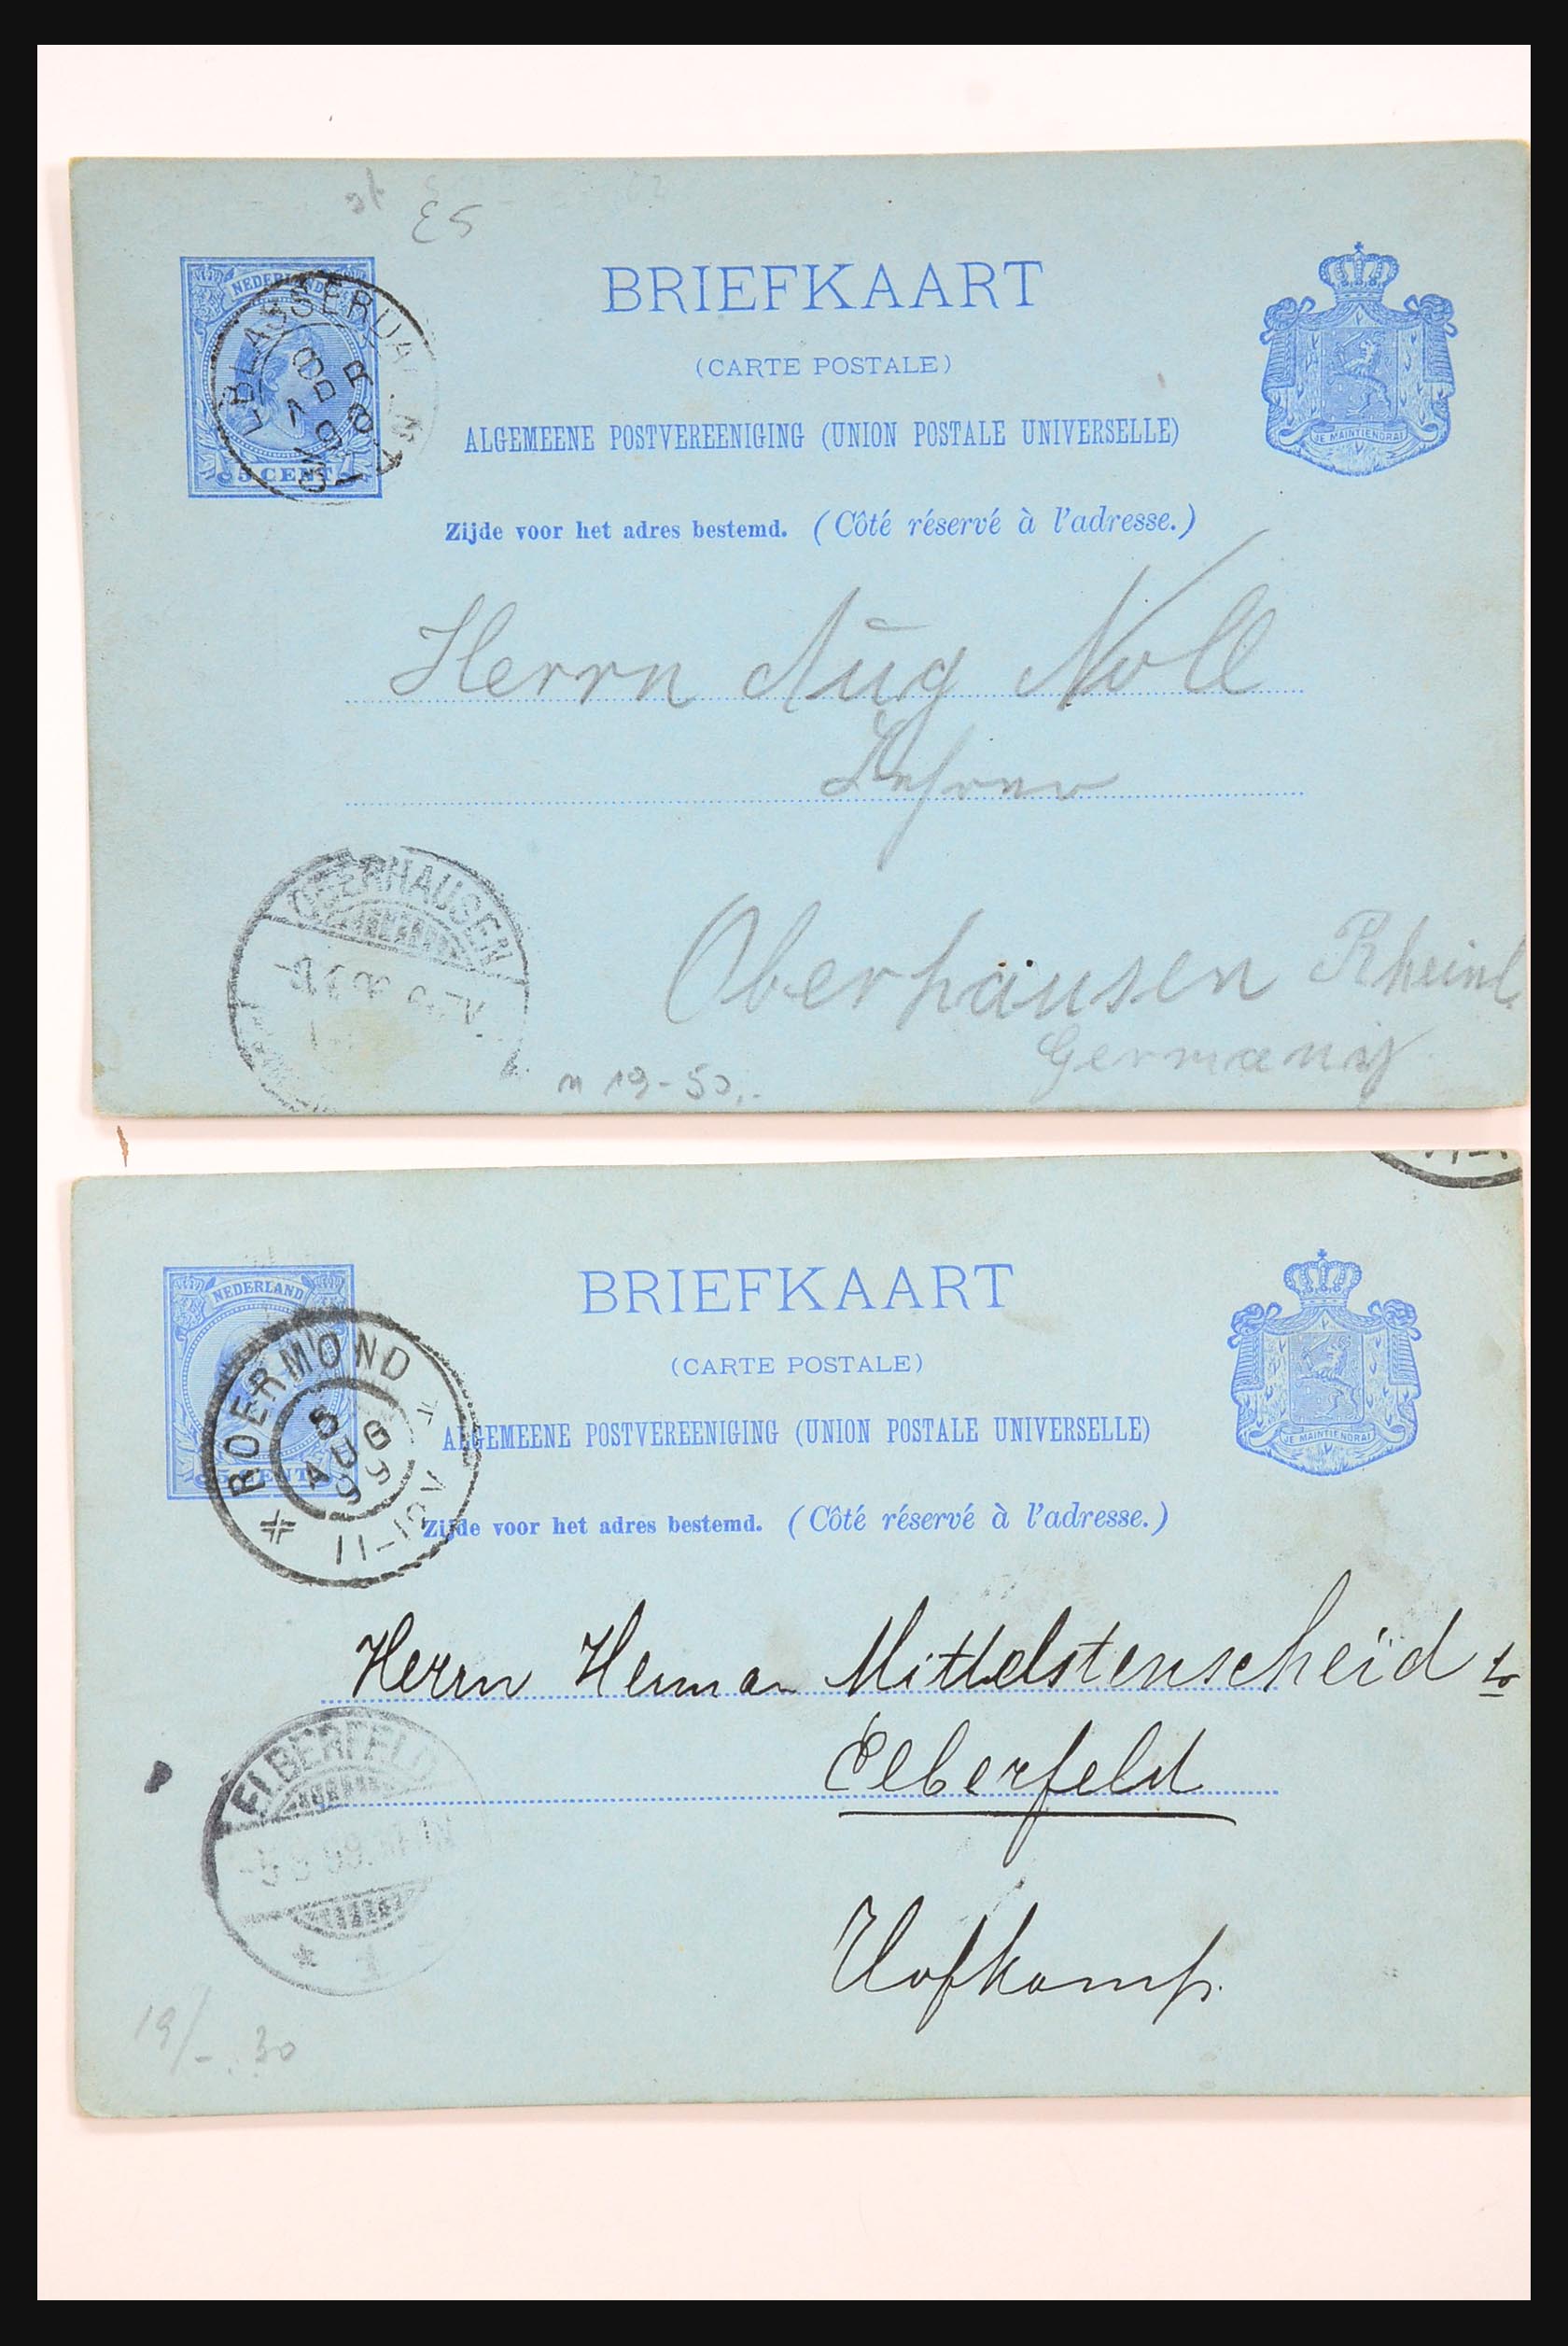 53
NEDERLAND
BRIEFKAART
(CARTE POSTALE)
5 CENT
ALGEMEENE POSTVEREENIGING (UNION POSTALE UNIVERSELLE)
JE MAINTIENDRAI
Zijde voor het adres bestemd. (Côté réservé à l'adresse.)
Herrn Aug Noll
Lehrer
OBERHAUSEN
Oberhausen Rheinl.
Germany
n 19-50.-
NEDERLAND
BRIEFKAART
(CARTE POSTALE)
ROERMOND
5 AUG 99
11-12V
5 CENT
ALGEMEENE POSTVEREENIGING (UNION POSTALE UNIVERSELLE)
JE MAINTIENDRAI
Zijde voor het adres bestemd. (Côté réservé à l'adresse.)
Herrn Herman Mittelstenscheid
Elberfeld
ELBERFELD
Hofkamp.
19/-. 30